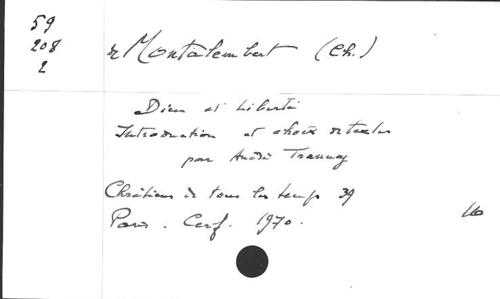 59
208
2
de Montalembert (Ch.)
Dieu et Liberté
Introduction et choix de textes
par André Trannoy
Chrétiens de tous les temps 39
Paris. Cerf. 1970.